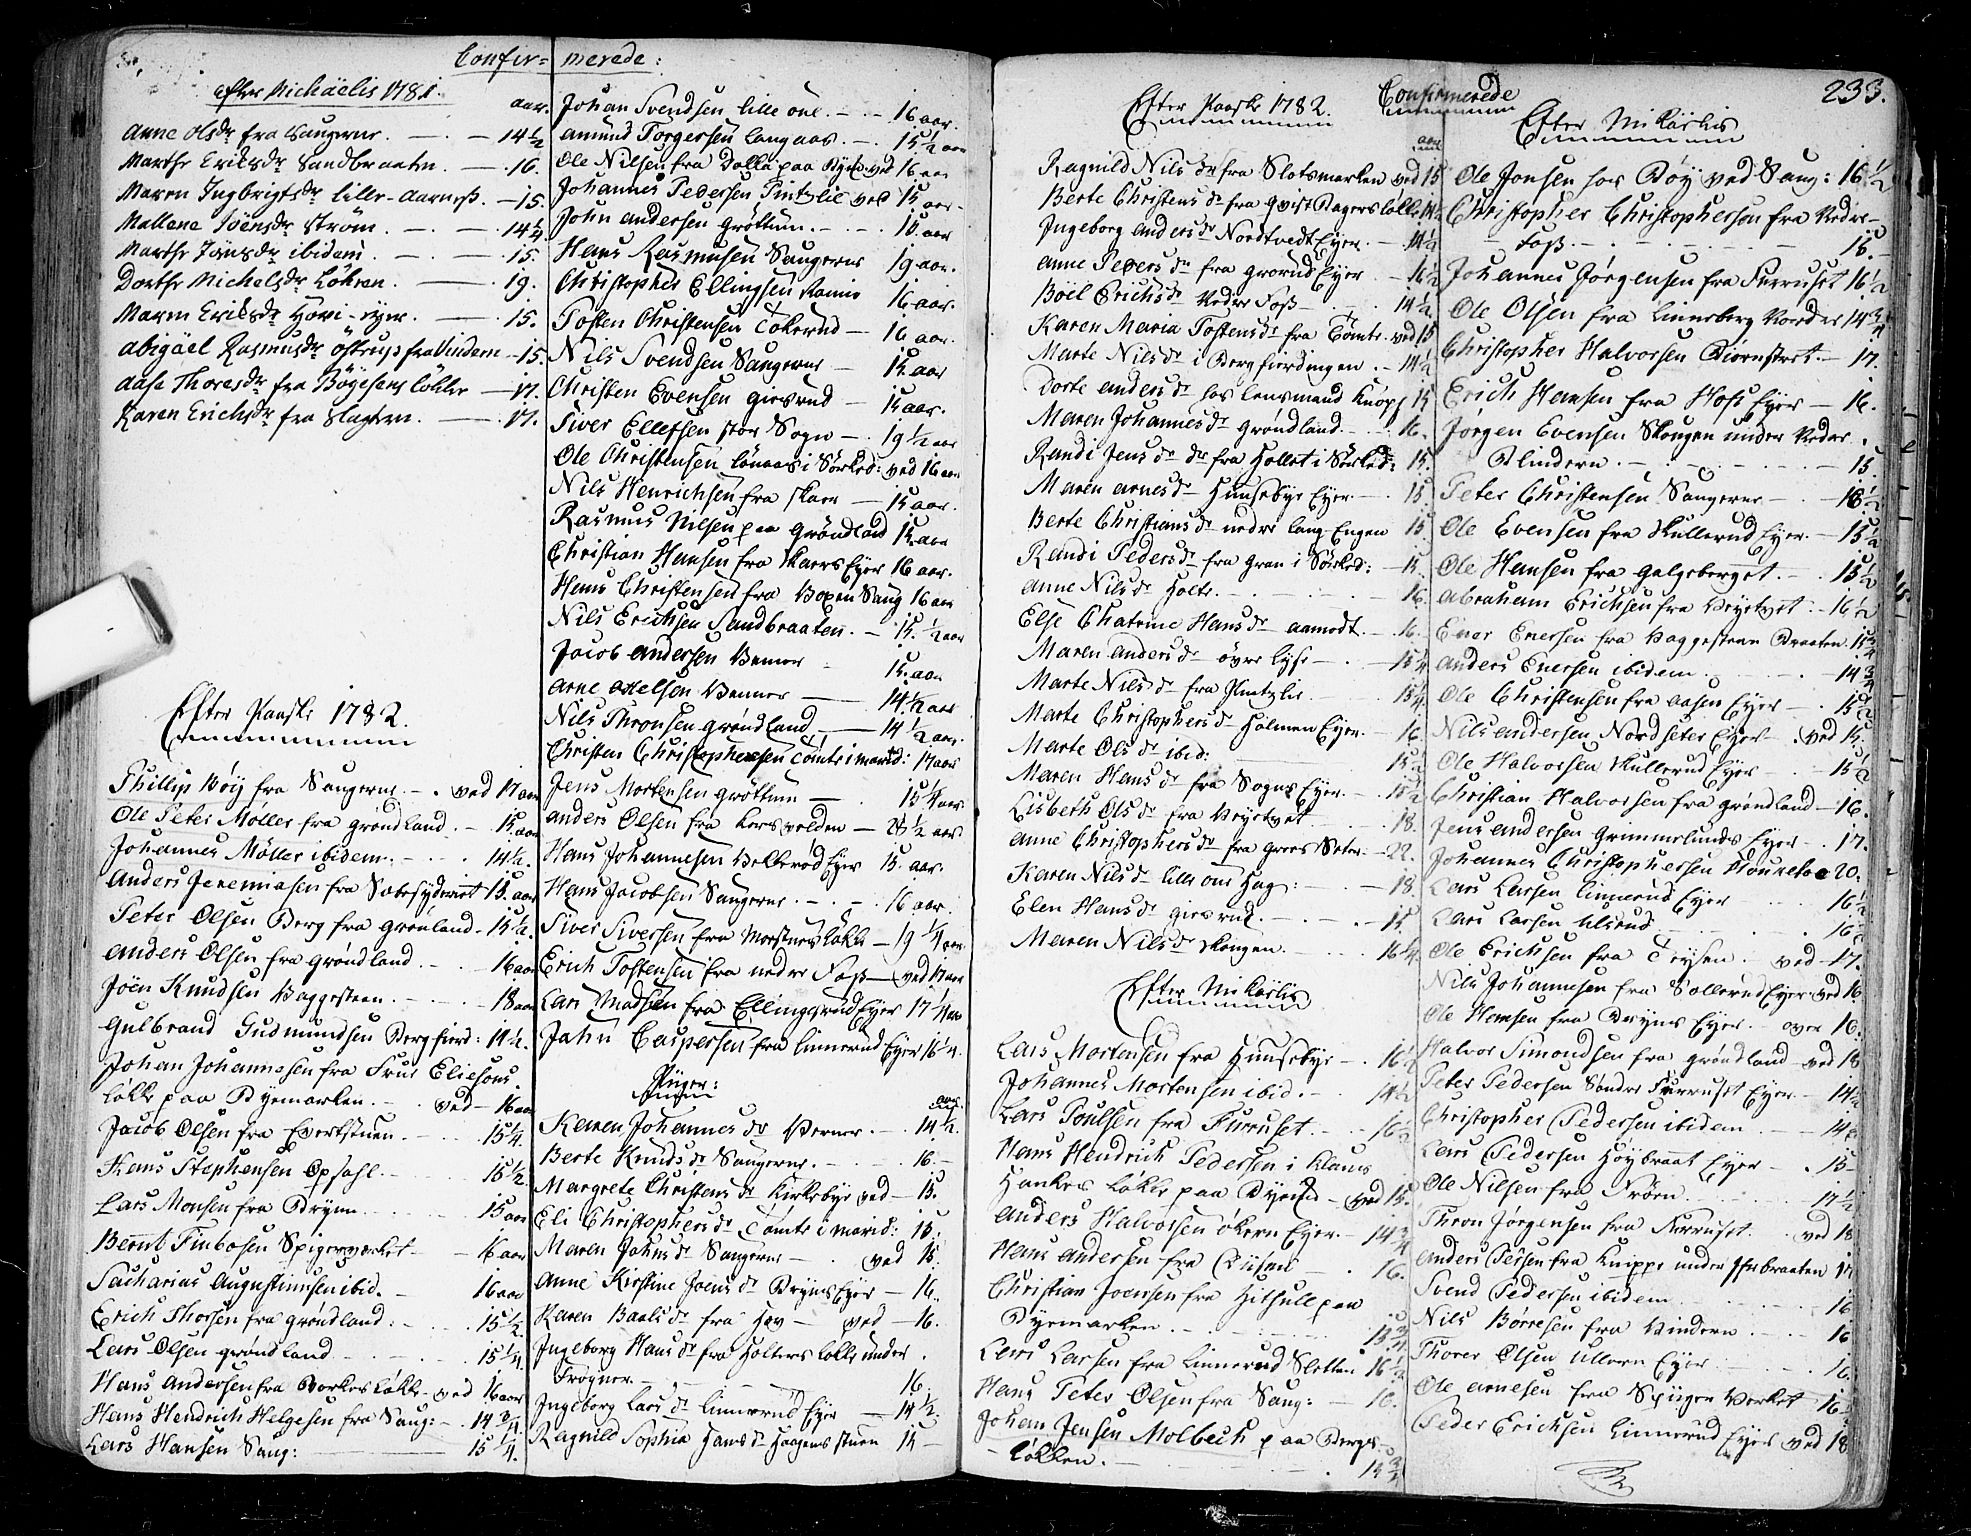 Confir= merede:
Efter Michäelis 1781.
aar.
Anne Olsdr fra Saugerne. — 14 1/2
Marthe Eriksdr Sandbraaten. — 16.
Maren Ingbrigtsdr lille-Aarness. — 15.
Mallene Jöensdr Strøm. — 14 1/4
Marthe Jönsdr ibidem. — 15.
Dorthe Michelsdr Løkren. — 19.
Maren Eriksdr Hovi-eyer. — 15.
Abigäel Rasmusdr Östrup fra Vindern — 15.
Aase Thoresdr fra Böyesens løkke — 17.
Karen Erichsdr fra Slagtern. — 17.
Efter Paaske 1782.
Phillip Böy fra Saugerne. — ved 17 aar
Ole Peter Møller fra Grøndland. — 15 aar
Johannes Møller ibidem. — 14 1/2.
Anders Jeremiasen fra Sæbesyderiet 15 aar
Peter Olsen Berg fra Grønland — 15 1/2.
Anders Olsen fra Grøndland. — 16 aar
Jöen Knudsen Baggesteen. — 18 aar
Gulbrand Gudmundsen Bergfierd: 14 1/2.
Johan Johannesen fra Frue Eliesons
løkke paa Byemarken. — ved — 16 aar
Jacob Olsen fra Evertstuen. — 15 1/4.
Hans Stephensen Opsahl. — 15 1/2
Lars Monsen fra Bryn. — 15 aar
Bernt Finbosen Spigerverket — 16 aar
Zacharias Augustinusen ibid. — 16 aar
Erich Thorsen fra Grøndland: — 15 1/2.
Lars Olsen Grøndland — 15 1/4.
Hans Andersen fra Borkes Løkke ved 16 aar
Hans Hendrich Helgesen fra Saug: — 14 3/4.
Lars Hansen Saug: — 15 1/4.
Johan Svendsen lille — 16 aar.
Amund Torgersen Langaas. — 15 1/2 aar
Ole Nilsen fra Dolka paa Byen ved 16 aar
Johannes Pedersen Pintzlie ved 15 aar
John Andersen Grøttum. — 18 aar
Hans Rasmusen Saugerne 19 aar.
Christopher Ellingsen 16 aar.
Tosten Christensen Tokerud — 16 aar.
Nils Svendsen Saugerne — 15 aar
Christen Evensen Giesrud — 15 aar.
Siver Ellefsen store Sogn — 19 1/2 aar
Ole Christensen Lönaas i Sørked: ved 16 aar
Nils Henrichsen fra Skaer — 15 aar.
Rasmus Nilsen paa Grøndland 15 aar
Christian Hansen fra Skaers Eyer 16 aar.
Hans Christensen fra Boxen Saug 16 aar
Nils Erichsen Sandbraaten. — 15 1/2 aar
Jacob Andersen Banner 15 aar
Arne Axelsen Banner — 14 1/2 aar
Nils Thronsen Grøndland — 14 1/2 aar.
Christen Christophersen Tömte i marid: 17 aar
Jens Mortensen Grøttum — 15 1/4 aar.
Anders Olsen fra Korsvolden — 23 1/2 aar
Hans Johannesen Bellerød Eyer 15 aar.
Hans Jacobsen Saugerne — 16 aar.
Siver Siversen fra Morstues løkke — 19 1/4 aar.
Erich Tostensen fra nedre Foss — ved 17 aar
Lars Madsen fra Ellingsrud Eyer 17 1/4 aar
Jahn Caspersen fra Linnerud Eyer 16 1/4.
Piger:
aar.
Karen Johannesdr Berner. — 14 1/2.
Berte Knudsdr Saugerne. — 16.
Margrete Christensdr Kirkebye ved — 15.
Eli Christophersdr Tömte i marid: 15.
Maren Johnsdr Saugerne — ved 15.
Anne Kirstine Joensdr Bryns Eyer — 16.
Karen Baalsdr fra Hov — ved — 16.
Ingeborg Hansdr fra Holters løkke under
Frogner. — 16.
Ingeborg Larsdr Linnerud Eyer — 14 1/2.
Ragnild Sophia Hansdr Haagenstuen 15 —
Confirmerede
233.
Efter Paaske 1782.
aar
Ragnild Nilsdr fra Slotsmarken ved 15
Berte Christensdr fra Qvist Bagers løkke 14 1/2
Ingeborg Andersdr Nordtvedt Eyer. — 14 1/2
Anne Pedersdr fra Grorud Eyer — 16 1/2
Böel Erichsdr Nedre Foss — 14 1/2.
Karen Maria Tostensdr fra Tömte ved 15
Marte Nilsdr i Bergfierdingen. — 14 1/2
Dorte Andersdr hos Lensmand Knoph 15
Maren Johannesdr Grøndland. — 16.
Randi Jensdr fra Hollet i Sørked: 15.
Maren Arnesdr Huusebye Eyer. — 15
Berte Christiansdr nedre Lang Engen 15
Randi Pedersdr fra Gran i Sørked: — 15.
Anne Nilsdr Holte. — 16.
Else Chatrine Hansdr Aamodt. — 16.
Maren Andersdr övre Lyse — 15 1/4
Marte Nilsdr fra Pintzlie. — 15 1/4
Marte Christophersdr Holmen Eyer. 16
Marte Olsdr ibid: — 15 1/2
Maren Hansdr fra Sogns Eyer. — 15 1/2
Lisbeth Olsdr fra Brystvet — 18.
Anne Christophersdr fra Grors Seter — 22.
Karen Nilsdr lille Hag: — 18.
Elen Hansdr Giesrud. — 15.
Maren Nilsdr Skougen. — 16 1/4.
Efter Mikaelis
Lars Mortensen fra Huusebye — 16 1/2
Johannes Mortensen ibid. — 14 1/2
Lars Poulsen fra Furruset. — 16 1/2
Hans Hendrich Pedersen i Klaus
Hankes løkke paa Byens — ved 15.
Anders Halvorsen Økern Eyer. — 14 3/4
Hans Andersen fra — 16.
Christian Joensen fra paa
Byemarken. — 15 3/4.
Lars Larsen fra Linnerud Sletten 16 1/2
Hans Peter Olsen fra Saug: — 16.
Johan Jensen Molbech paa Berges
løkken. — 14 3/4
Efter Mikaelis
Ole Jonsen hos Böy ved Saug: 16 1/2
Christopher Christophersen fra Nedre
Foss. — 15.
Johannes Jörgensen fra Furruset 16 1/2
Ole Olsen fra Linneberg Nordre 14 3/4
Christopher Halvorsen Biørnstret. — 17.
Erich Hansen fra Hofs Eyer — 16.
Jørgen Evensen Skougen under Nedre
Blindern. — 15
Peter Christensen Saugerne — 18 1/2
Ole Evensen fra Skullerud Eyer. — 15 1/2
Ole Hansen fra Galgeberget. — 15 1/2
Abraham Erichsen fra Brystvet. 16 1/2
Ener Enersen fra Baggesteen Braaten. 15 3/4
Anders Enersen ibidem. — 14 3/4
Ole Christensen fra Aasen Eyer — 15 1/2
Nils Andersen Nordseter Eyer — ved 15.
Ole Halvorsen Skullerud Eyer — 15 1/2
Christian Halvorsen fra Grøndland — 16.
Jens Andersen Grimmelunds Eyer — 17.
Johannes Christophersen 20.
Lars Larsen Linnerud Eyer — 16 1/2
Lars Larsen Ulsrud — 16
Ole Erichsen fra Trysen. — ved — 17.
Nils Johannesen fra Sollerud Eyer ved 16
Ole Hansen fra Bryns Eyer. — over 16.
Halvor Simondsen fra Grøndland ved 18
Peter Pedersen Søndre Furruset Eyer — 14 1/2
Christopher Pedersen ibidem — 14
Lars Pedersen Höybraat Eyer — 15
Ole Nilsen fra Frøen. — 17 1/2
Thron Jørgensen fra Furruset. — ved 18
Anders Persen fra Knippe under braaten 17
Svend Pedersen ibidem — 16
Nils Børresen fra Vindern. — 16
Thorer Olsen Ullern Eyer — 16.
Ole Arnesen fra Spiger Verket 16
Peder Erichsen Linnerud Eyer ved 18